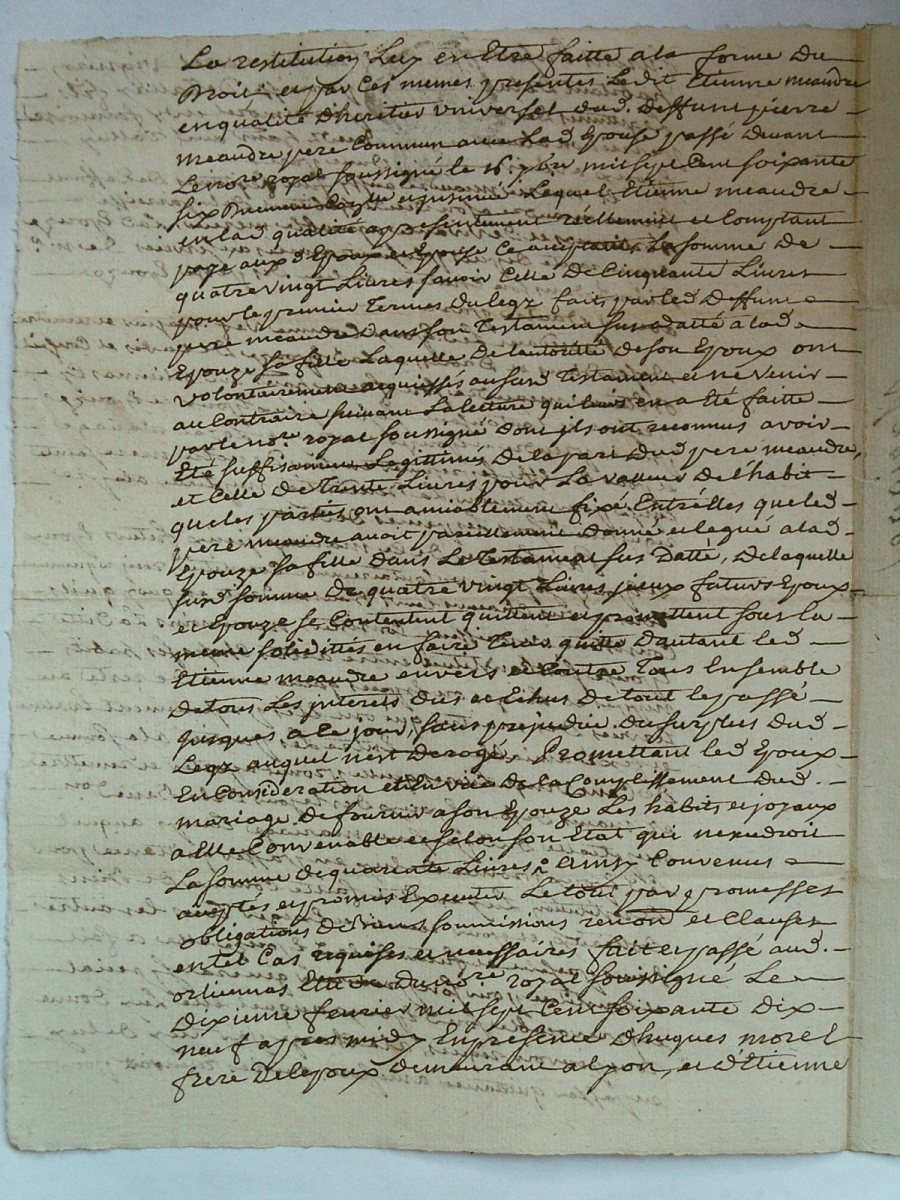 La restitution Luy en Etre faitte a la forme Du
Droit et par Ces memes presentes Ledit Etienne meandre
en qualité D'heritier universel dud. Deffunt pierre
meandre pere Commun avec Lad Epouse passé Devant
Le no.re royal soussigné le 16. 7bre mil sept Cent soixante
six Duement et insinué Lequel Etienne meandre
en la d qualité a presentement réellement et Comptant
payé auxd Epoux et Epouse Ce acceptants, La somme De
quatre vingt Livres savoir Celle De Cinquante Livres
pour le premier Termes Du legz fait par led Deffunt
pere meandre Dans son Testament susdatté a lad
Epouze sa fille Laquelle De l'autorité De son Epoux ont
volontairement acquiessés au susd Testament et ne venir
au Contraire suivant La lecture qui leurs en a Eté faitte
par le no.re royal soussigné dont ils ont reconnus avoir
Eté suffisamment Legittimés De la part Dud pere meandre,
et Celle De Trente Livres pour La valleur De l'habit
que les parties ont amiablement fixé Entr'elles que led
pere meandre avoit pareillement Donné et legué a lad
Epouze sa fille Dans Le Testament sus Datté, De laquelle
susd somme De quatre vingt Livres iceux futurs Epoux
et Epouze se Contentent quittent et promettent sous la
meme solidittés en faire Tenir quitte D'autant led
Etienne meandre envers et Contre Tous Ensemble
De tous Les interets Dus et Echus De tout le passé
jusques a le jour, sans prejudice Du surplus Dud
Legz auquel n'est Derogé, Promettant led Epoux
En Consideration et En vue De la Complissement Dud.
mariage De fournir a son Epouze Les habits et joyaux
a Elle Convenable et selon son Etat qui nexcedroit
La somme De quarente Livres; ainsy Convenus
acceptés et promis Executer Le tout par promesses
obligations De biens soumissions renon.on et Clauses
en tel Cas requises et necessaires fait et passé aud.
orliennas Etude Du no.re royal soussigné Le
Dixieme fevrier mil sept Cent soixante Dix
neuf apres midy En presence D'hugues morel
frere De lepoux Demeurant a Lyon, et d'Etienne